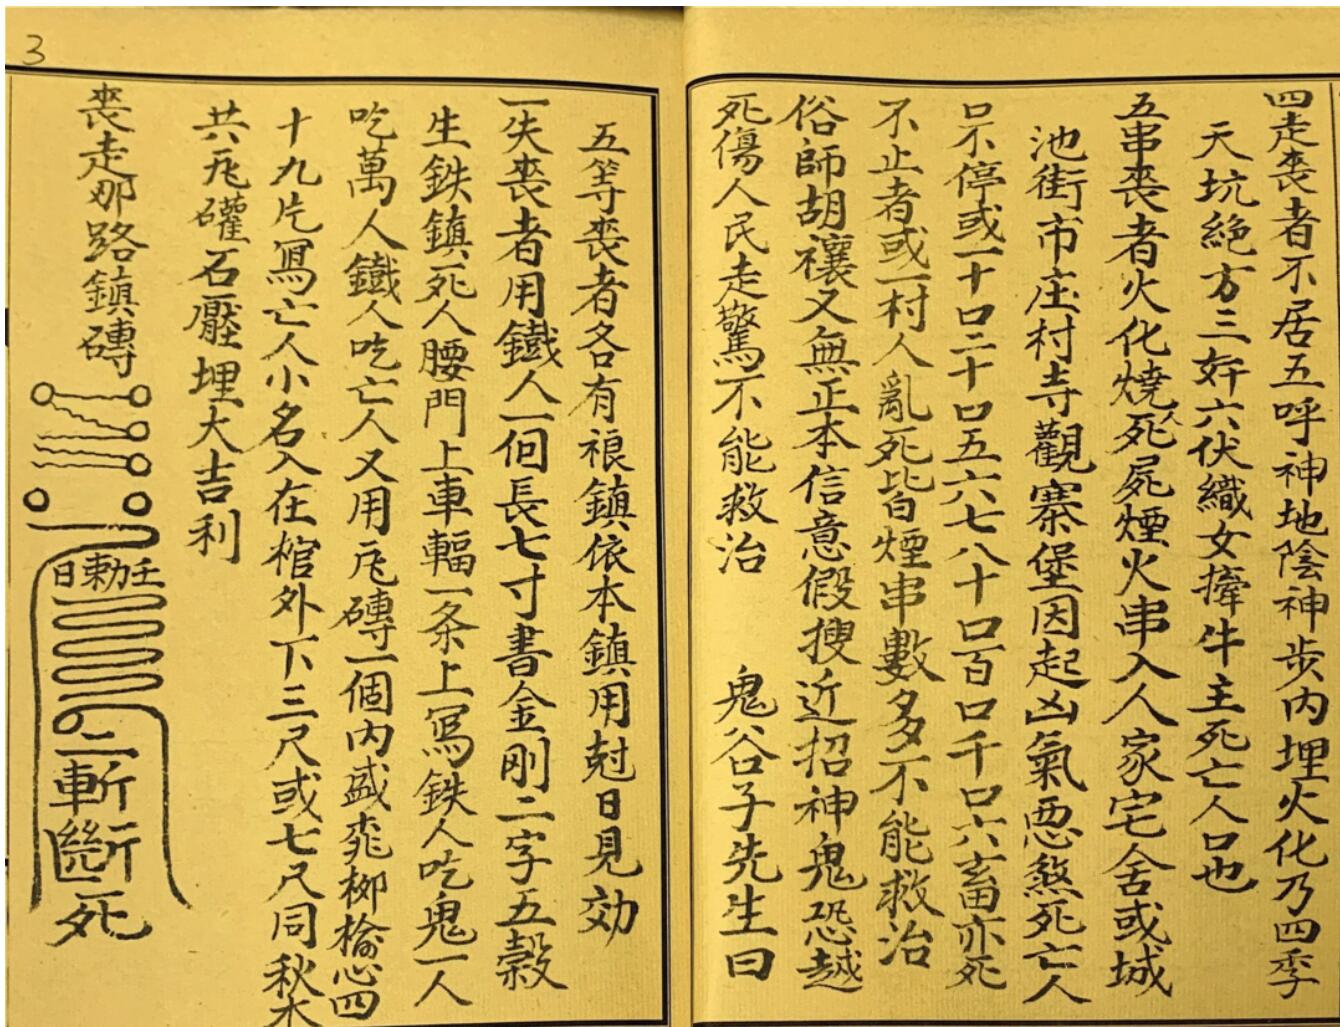 四走丧者不居五呼神地陰神步内埋火化乃四季
天坑絶方三奸六伏織女牽牛主死亡人口也
五串丧者火化燒死人屍煙火串入人家宅舍或城
池街市庄村寺觀寨堡因起凶氣恶煞死亡人
口不停或一十口二十口五六七八十口百口千口六畜亦死
不止者或一村人亂死皆因煙串數多不能救治
俗師胡禳又無正本信意假搜近招神鬼恐越
死傷人民走驚不能救治 鬼谷子先生曰
五等丧者各有禳鎮依本鎮用尅日見効
一失丧者用鐵人一個長七寸書金剛二字五榖
生鉄鎮死人腰門上車輻一条上寫鉄人吃鬼一人
吃萬人鐵人吃亡人又用瓦磚一個内盛桃柳榆心四
十九片寫亡人小名入在棺外下三尺或七尺同秋木
共瓦礶石壓埋大吉利
丧走那路鎮磚
日勅壬
二斬斷死
3